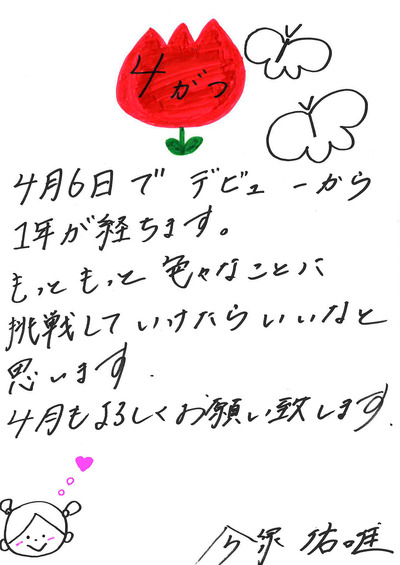 4がつ
4月6日で デビューから
1年が経ちます。
もっともっと 色々なことに
挑戦していけたらいいなと
思います.
4月もよろしくお願い致します.
今泉 佑唯